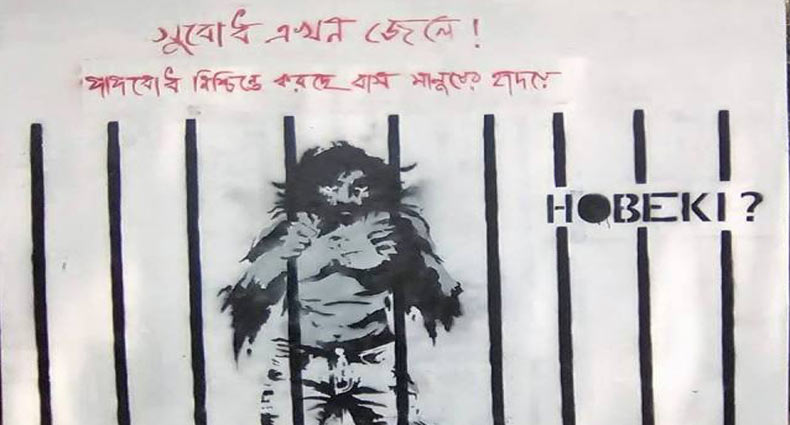 সুবোধ এখন জেলে!
পাপবোধ নিশ্চিন্তে করছে বাস মানুষের হৃদয়ে
HOBEKI?